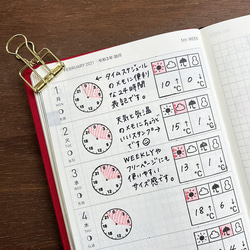 FEBRUARY 2021
1
月
←タイムスケジュール
のメモに便利
な24時間
表記です。
10 ↑ 0 ↓
2
火
天気と気温
のメモにちょうど
いいスタンプ→
です☺
15 ↑ 1 ↓
3
水
WEEKLYや
フリーページにも
使いやすい
サイズ感です。
13 ↑ 1 ↓
4
木
18 ↑ 6 ↓